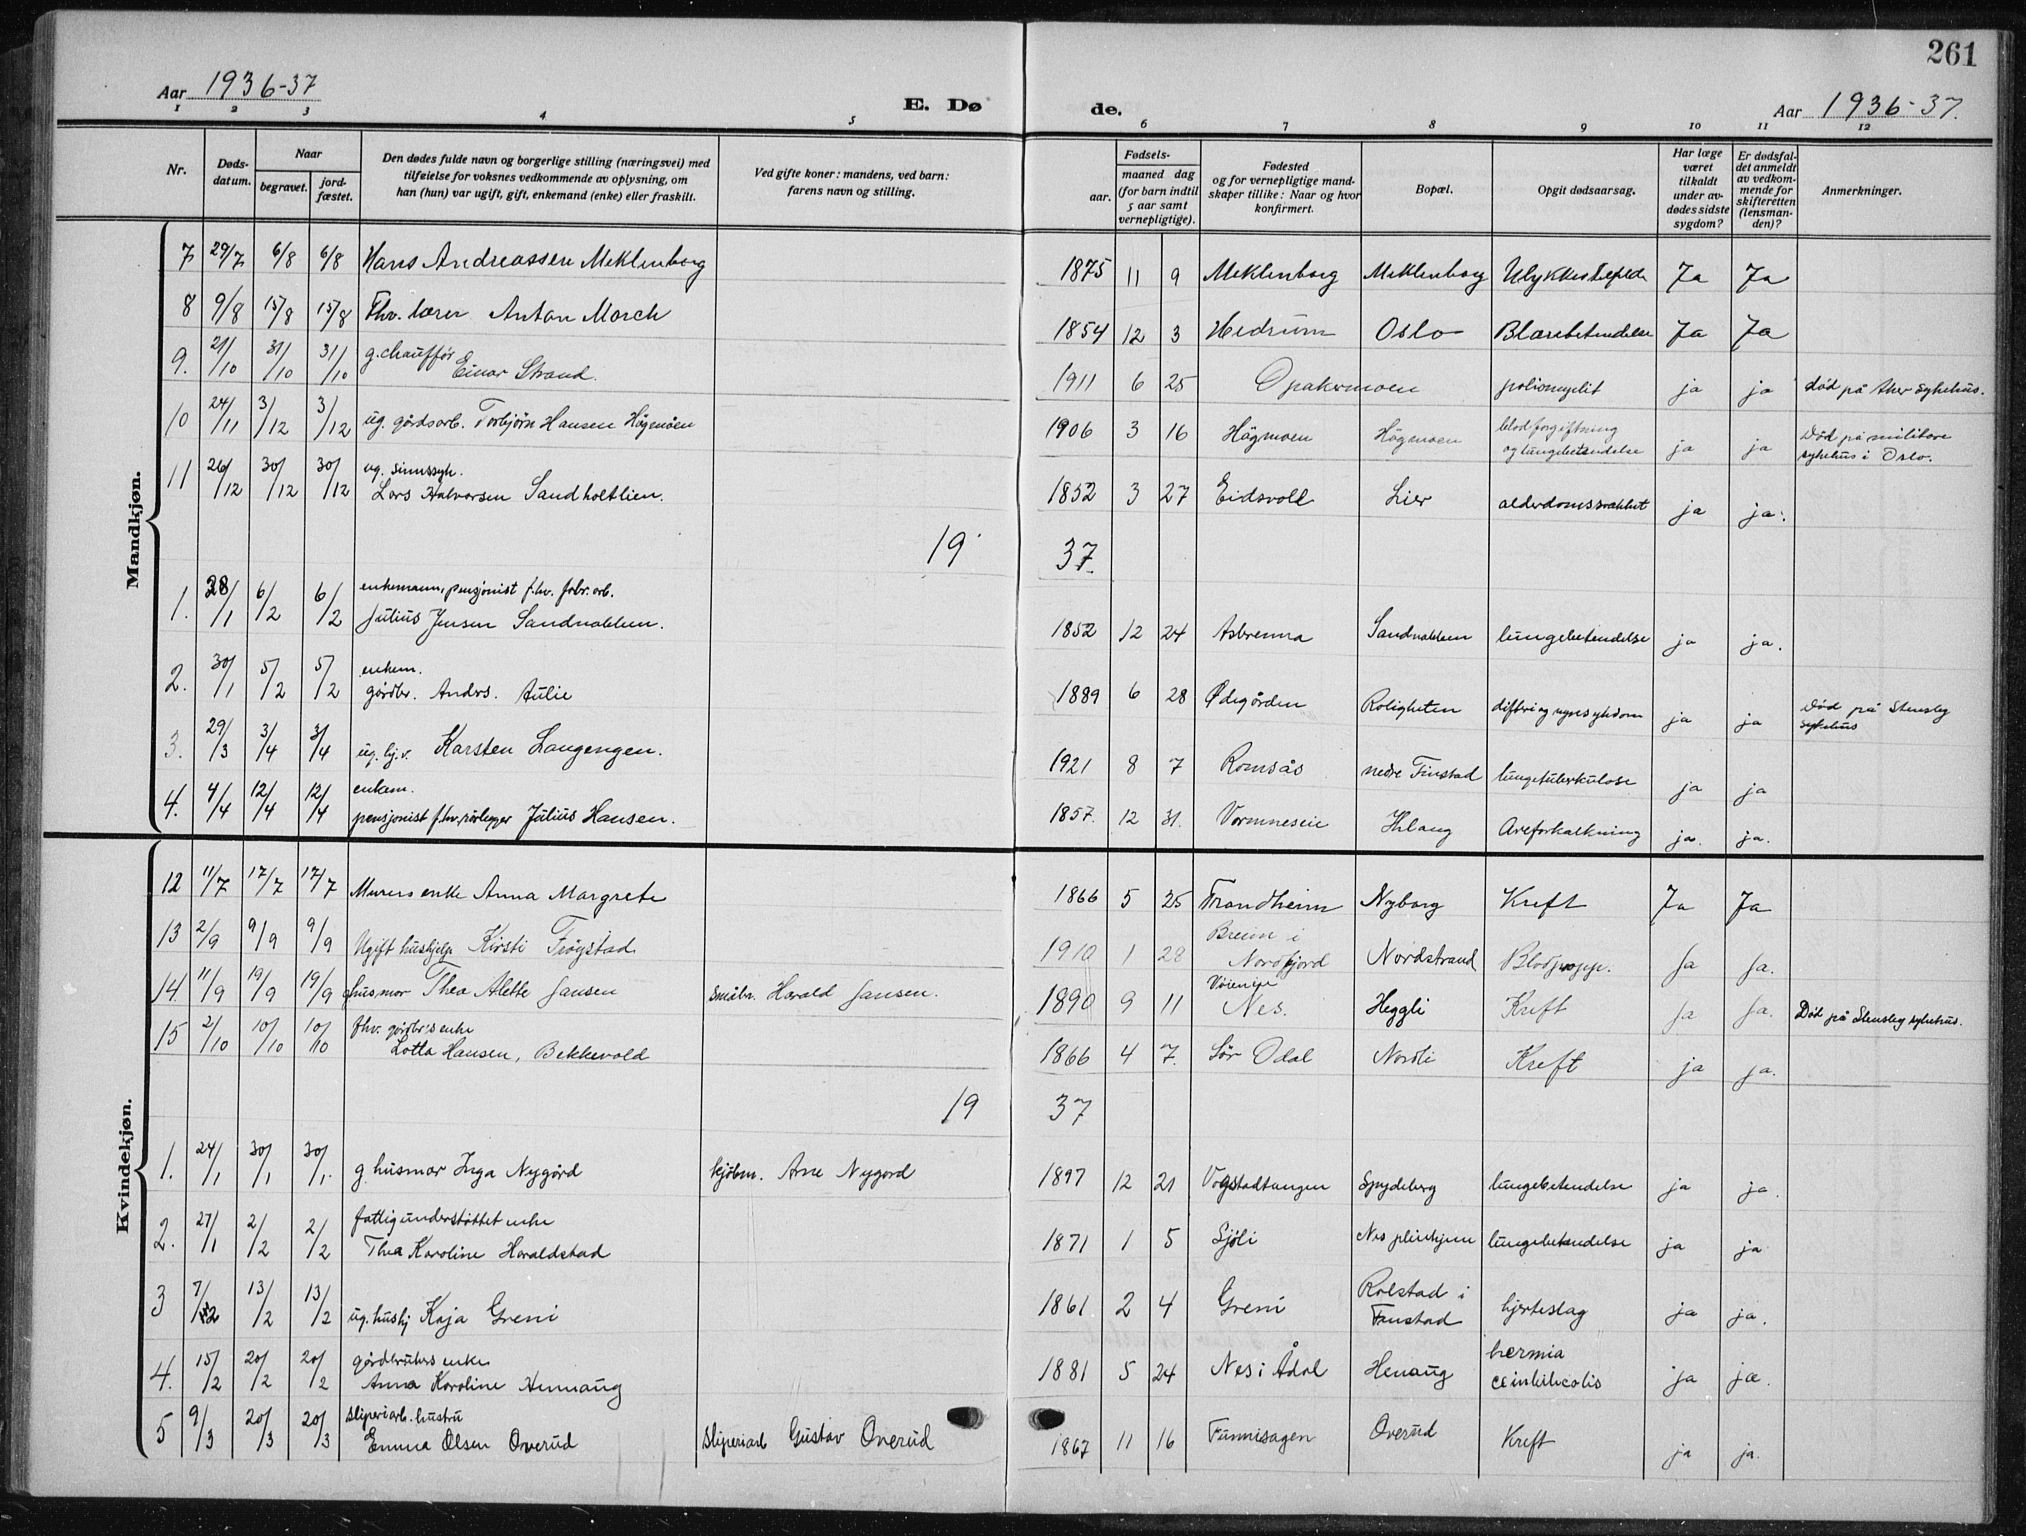 261
Aar 1936-37
E. Dø
de.
Aar 1936-37.
1 2 3 4 5 6 7 8 9 10 11 12
Nr.
Døds-
datum.
Naar
begravet.
jord-
fæstet.
Den dødes fulde navn og borgerlige stilling (næringsvei) med
tilføielse for voksnes vedkommende av oplysning, om
han (hun) var ugift, gift, enkemand (enke) eller fraskilt.
Ved gifte koner: mandens, ved barn:
farens navn og stilling.
Fødsels-
aar.
maaned dag
(for barn indtil
5 aar samt
vernepligtige).
Fødested
og for vernepligtige mand-
skaper tillike: Naar og hvor
konfirmert.
Bopæl.
Opgit dødsaarsag.
Har læge
været
tilkaldt
under av-
dødes sidste
sygdom?
Er dødsfal-
det anmeldt
av vedkom-
mende for
skifteretten
(lensman-
den)?
Anmerkninger.
Mandkjøn.
7 29/7 6/8 6/8 Hans Andreassen Meklenborg 1875 11 9 Meklenborg Meklenborg Ja Ja
8 9/8 15/8 15/8 Fhv. lærer Anton Morch 1854 12 3 Hedrum Oslo Blærebetendelse Ja Ja
9. 21/10 31/10 31/10 g. chauffør
Einar Strand. 1911 6 25 Opakermoen poliomyelit ja ja død på Aker sykehus.
10 24/11 3/12 3/12 ug. gårdsarb. Torbjørn Hansen Hågmoen 1906 3 16 Hågmoen Hågmoen blodforgiftning
og lungebetendelse ja ja Død på militære
sykehus i Oslo.
11 26/12 30/12 30/12 ug. sinnssyk.
Lars Halvorsen Sandholtlien. 1852 3 27 Eidsvoll Lier alderdomssvakhet ja ja.
19 37.
1. 28/1 6/2 6/2 enkemann, pensjonist f.hv. fabr. arb.
Julius Jensen Sandnakken. 1852 12 24 Asbrenna Sandnakken lungebetendelse ja ja.
2. 30/1 5/2 5/2 enkem.
gårdbr. Anders. Aulie 1889 6 28 Ødegården Roligheten difteri og nyresykdom ja ja Død på Stensby
sykehus
3. 29/3 3/4 3/4 ug. hj.v. Karsten Langengen. 1921 8 7 Romsås nedre Finstad lungetuberkulose ja ja
4. 4/4 12/4 12/4 enkem.
pensjonist f.hv. rørlegger Julius Hansen. 1857. 12 31. Vormneseie Åreforkalkning ja. ja.
Kvindekjøn.
12 11/7 17/7 17/7 Murers enke Anna Margrete 1866 5 25 Trondheim Nyborg Kreft Ja Ja
13 2/9 9/9 9/9 Ugift hushjelp Kirsti Frøystad 1910 1 28 Breim i
Nordfjord Nordstrand Blodpropp. Ja Ja.
14. 11/9 19/9 19/9 g husmor Thea Alette Jansen småbr. Harald Jansen. 1890 9 11
Nes. Heggli Kreft Ja Ja. Død på Stensby sykehus.
15 2/10 10/10 10/10 fhv. gårdbr's enke
Lotta Hansen, Bekkevold 1866 4 7. Sør Odal Nordli Kreft ja ja.
19 37
1. 24/1 30/1 30/1. g. husmor Inga Nygård kjøbm. Arne Nygård 1897 12 21 Vogstadtangen Spydeberg lungebetendelse ja ja.
2. 27/1 2/2 2/2 fattigunderstøttet enke
Thea Karoline Haraldstad 1871 1 5 Sjøli Nes pleiehjem lungebetendelse ja ja
3 7/2 13/2 13/2 ug. hushj Kaja Greni 1861. 2 4 Greni Rolstad i
Fenstad hjerteslag ja ja.
4. 15/2 20/2 20/2 gårdbrukers enke
Anna Karoline Hennaug 1881 5 24 Nes i Ådal Henaug ja ja.
5 9/3 20/3 20/3 sliperiarb. hustru
Emma Olsen Overud sliperiarb Gustav Overud 1867 11 16 Funnisagen Overud Kreft ja ja.